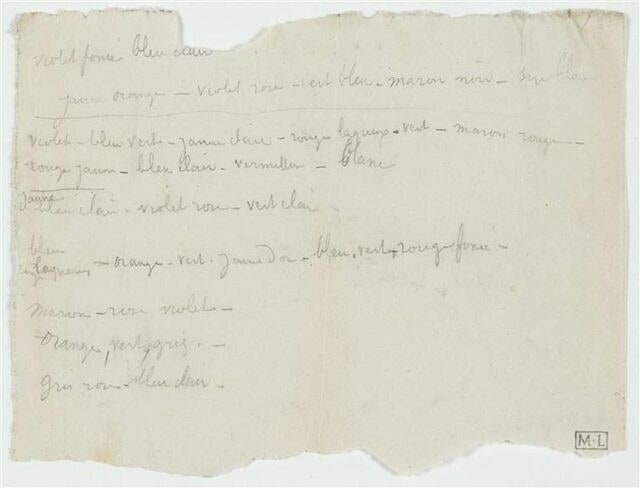 violet foncé bleu clair
jaune orange – violet rose – vert bleu – maron noir – blanc
violet – bleu vert – jaune clair – rouge laqueux – vert – maron rouge –
rouge jaune – bleu clair – vermillon – blanc
jaune
bleu clair – violet rose – vert clair –
bleu
rouge laqueux – orange – vert – jaune d'or – bleu, vert, rouge foncé –
maron – rose violet –
orange, vert, gris. –
gris rose – bleu clair –
M.L